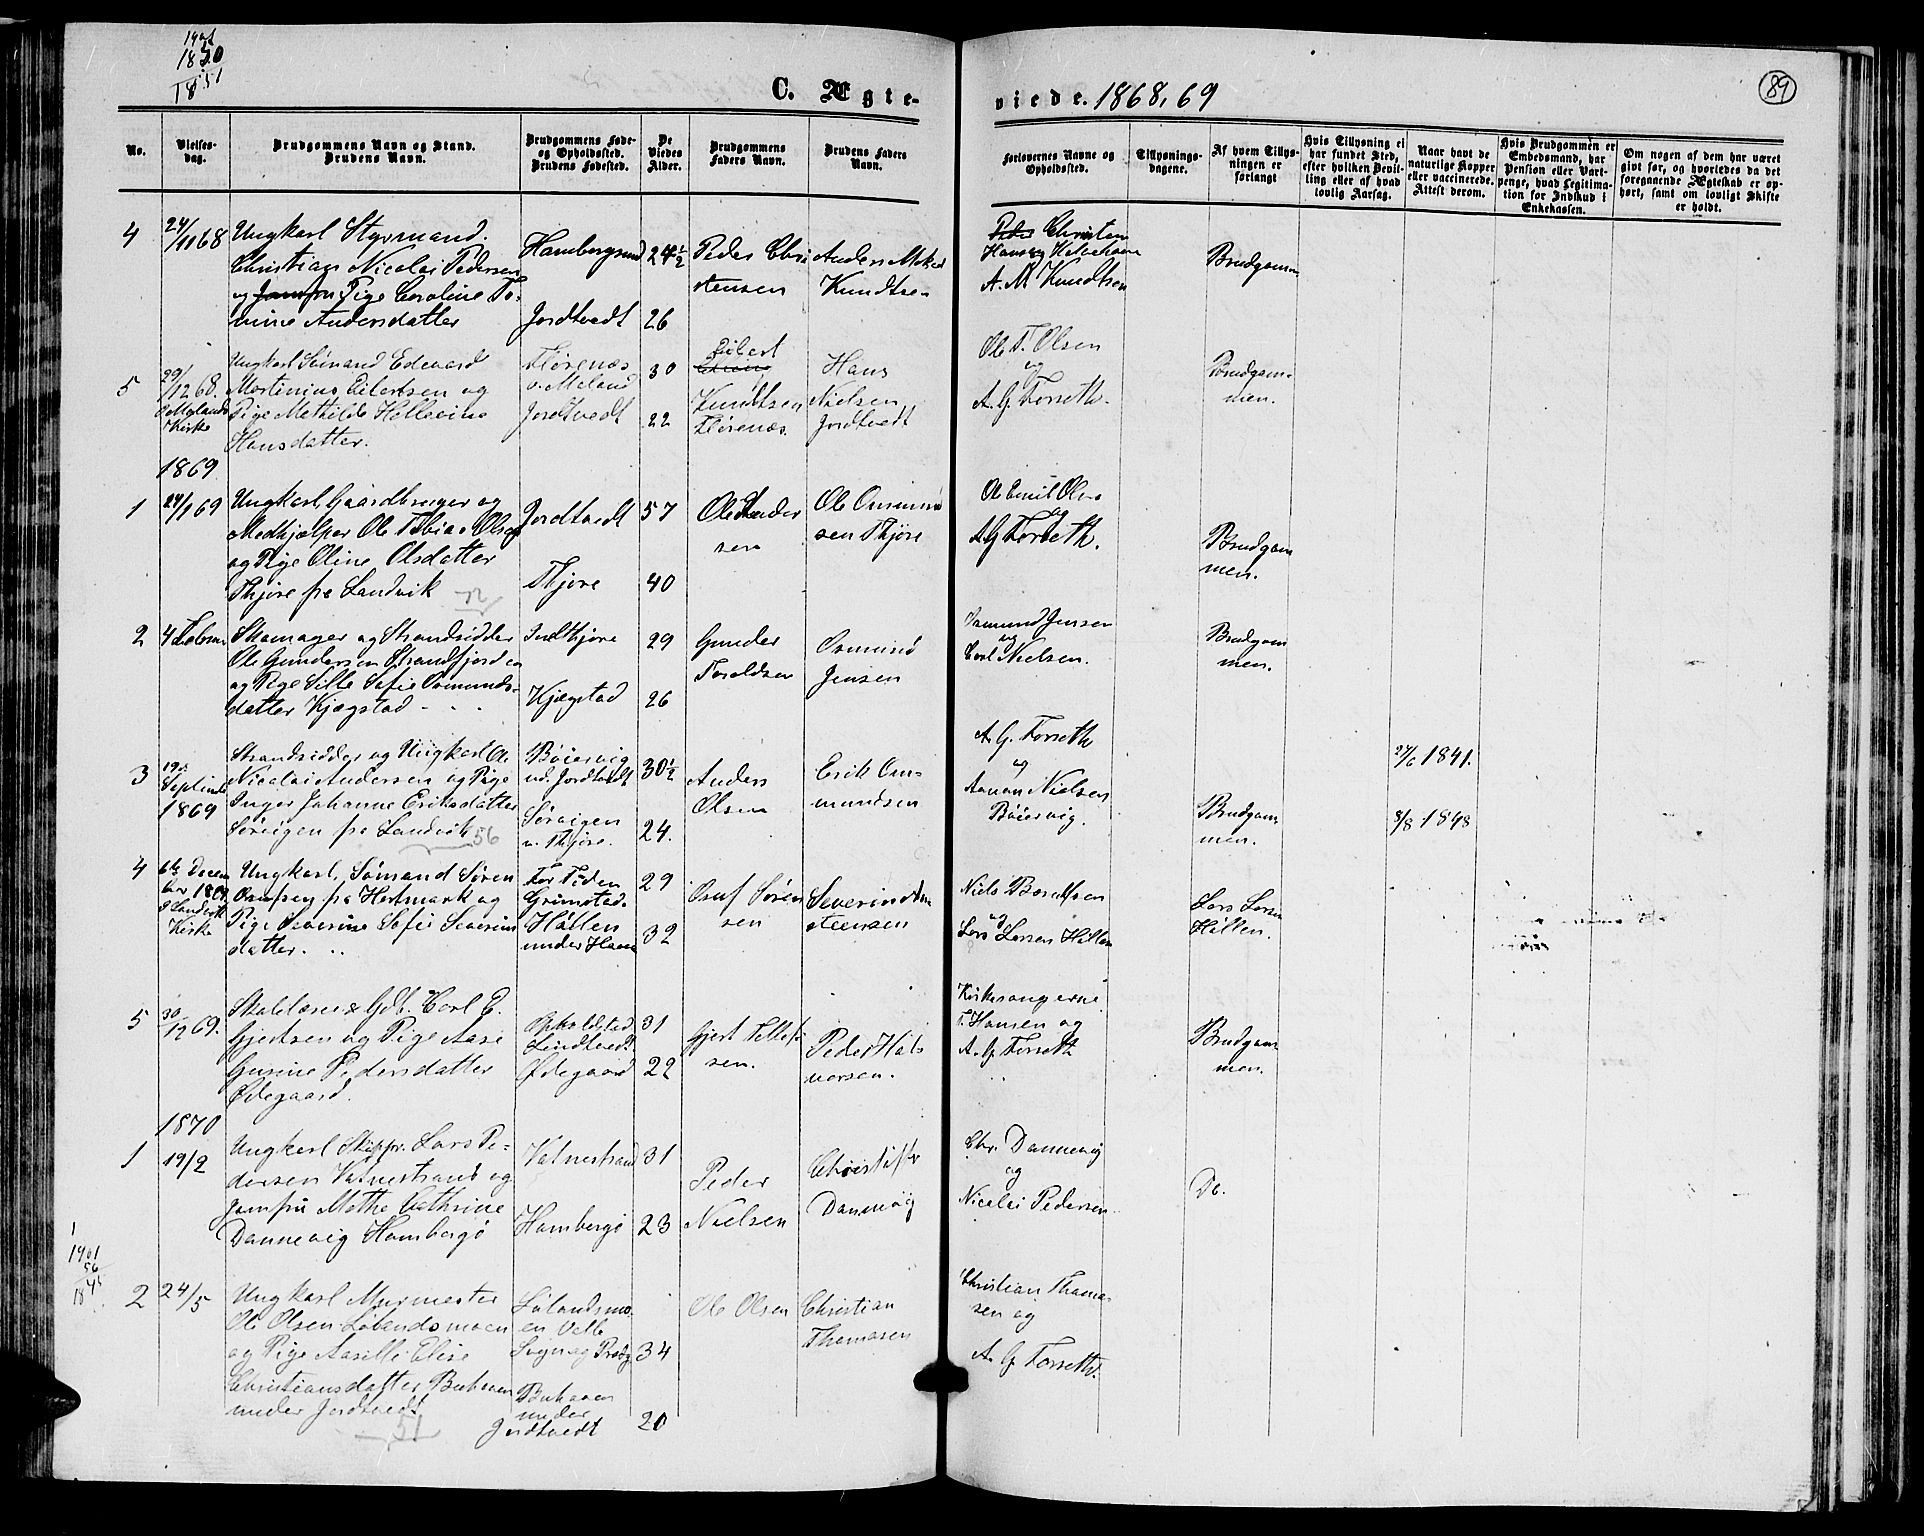 1901
1850
18 51
C. Ægte-
viede. 1868, 69
89
No.
Vielses-
dag.
Brudgommens Navn og Stand.
Brudens Navn.
Brudgommens Føde-
og Opholdssted.
Brudens Fødested.
De
Viedes
Alder.
Brudgommens
Faders Navn.
Brudens Faders
Navn.
Forlovernes Navne og
Opholdssted.
Tillysnings-
dagene.
Af hvem Tillys-
ningen er
forlangt
Hvis Tillysning ei
har fundet Sted,
efter hvilken Bevil-
ling eller af hvad
lovlig Aarsag.
Naar havt de
naturlige Kopper
eller vaccinerede.
Attest derom.
Hvis Brudgommen er
Embedsmand, har
Pension eller Vart-
penge, hvad Legitima-
tion for Indskud i
Enkekassen.
Om nogen af dem har været
givt før, og hvorledes da det
foregaaende Ægteskab er op-
hørt, samt om lovligt Skifte
er holdt.
4
24/11 68
Ungkarl Styrmand
Christian Nicolai Pedersen
og Jomfru Pige Caroline To-
mine Andersdatter
Hambergsund
Jordtvedt
24 1/2
26
Peder Chri
stensen
Anders
Knudtsen
Peder Christen
A. M. Knudtsen
Brudgommen
5
29/12 68.
Kirke
Ungkarl Sømand Edevard
Martinius Eilertsen og
Pige Mathilde Hellevine
Hansdatter.
Flørenæs
Jordtvedt
30
22
Eilert
Knudtsen
Flørenæs.
Hans
Nielsen
Jordtvedt
Ole T. Olsen
og
A. G. Forseth.
Brudgom-
men.
1869
1
24/1 69
Ungkarl, Gaardbruger og
Medhjælper Ole Tobias Olsen
og Pige Oline Olsdatter
Thjøre fra Landvik
Jordtvedt
Thjøre
57
40
Ole
sen
Ole Osmund
sen Thjøre
Ole Emil Olsen
A G Forseth.
Brudgom
men.
2
4 Februar
Skomager og Strandsidder
Ole Gundersen Strandfjorden
og Pige Sille Sofie Osmunds-
datter Kjægstad
Indthjøre
Kjægstad
29
26
Gunder
Toroldsen
Osmund
Jensen
Osmund Jensen
og
Carl Nielsen.
Brudgom
men.
3
19de
Septimb
1869
Strandsidder og Ungkarl Ole
Nicolai Andersen og Pige
Inger Johanne Eriksdatter
Sørvigen fra Landvik
56
Bøiervig
ud. Jordtvedt
Sørvigen
u. Thjøre.
30 1/2
24.
Anders
Olsen
Erik Os-
mundsen
A. G. Forseth
og
Aanon Nielsen
Bøiervig.
Brudgom
men.
27/6 1841.
8/8 1848
4
6te Decem
ber 1869
I Landvik
Kirke
Ungkarl, Sømand Søren
Osufsen fra Hortmark og
Pige Severine Sofie Severins
datter.
Grimstad.
Hällen
under Haave
29
32
Osuf Søren
sen
Severin
steensen
Niels Berentsen
og
Lars Larsen Hällen
Lars Larsen
Hällen.
5
30/12 69.
Skolelærer & Gdb. Carl E.
Gjertsen og Pige Aase
Gurine Pedersdatter
Ødegaard.
Opholdstad
Lindtvedt
Ødegaard
31
22
Gjert Tellef
sen.
Peder Hal-
vorsen.
Kirkesangerne
T. Hansen og
A. G. Forseth
Brudgom
men.
1870
1
19/2
Ungkarl Skippr. Lars Pe-
dersen Vatnestrand og
Jomfru Mathe Cathrine
Dannevig Hambergø
Vatnestrand
Hambergø
31
23
Peder
Nielsen
Christoffer
Dannevig
Chr. Dannevig
og
Nicolai Pedersen
Do.
1901
56
1845
2
24/5
Ungkarl Murmester
Ole Olsen Lølandsmoen
og Pige Aasille Elise
Christiansdatter Buhaven
under Jordtvedt
51
Lølandsmo-
en Valle
Sogn og Prstg
Buhaven
under
Jordtvedt
34
20
Ole Olsen
Christian
Thomasen
Christian Thoma-
sen og
A. G. Forseth.